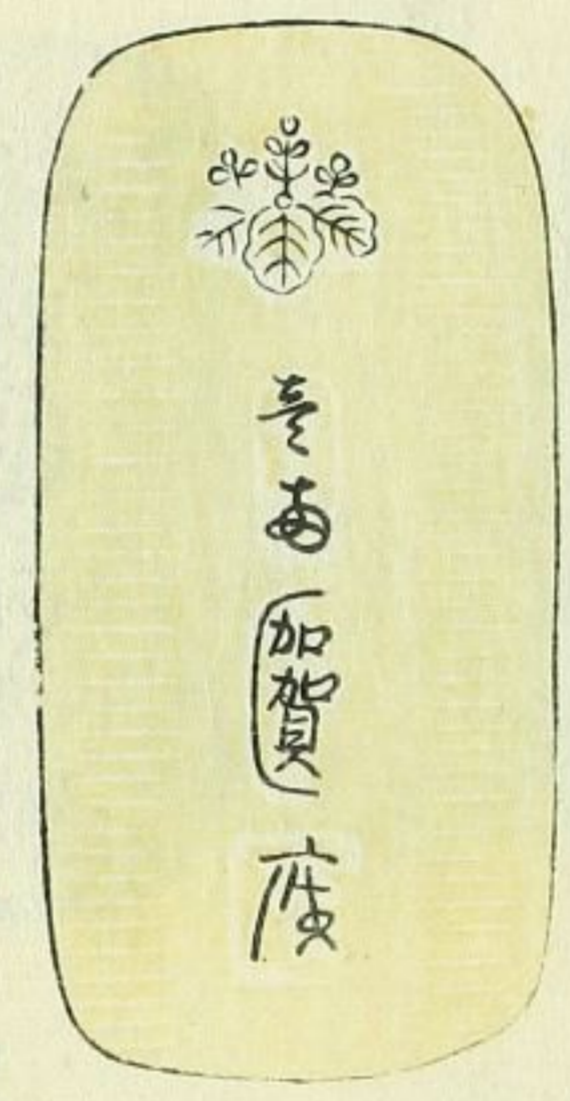 壹両加賀